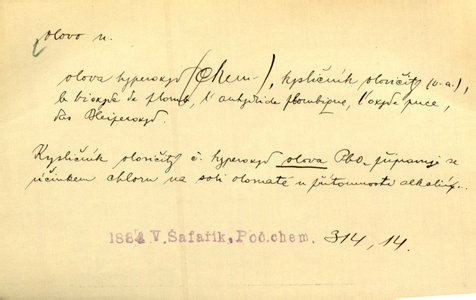 olovo n.
olova hyperoxyd (Chem.), kysličník olovičitý (v. a.),
le bioxyde de plomb, l'anhydride plombique, l'oxyde puce,
das Bleiperoxyd.
Kysličník olovičitý č. hyperoxyd olova PbO₂ připravuje se
účinkem chloru na soli olovnaté u přítomnosti alkalií...
1882 V. Šafařík, Poč. chem. 314, 14.